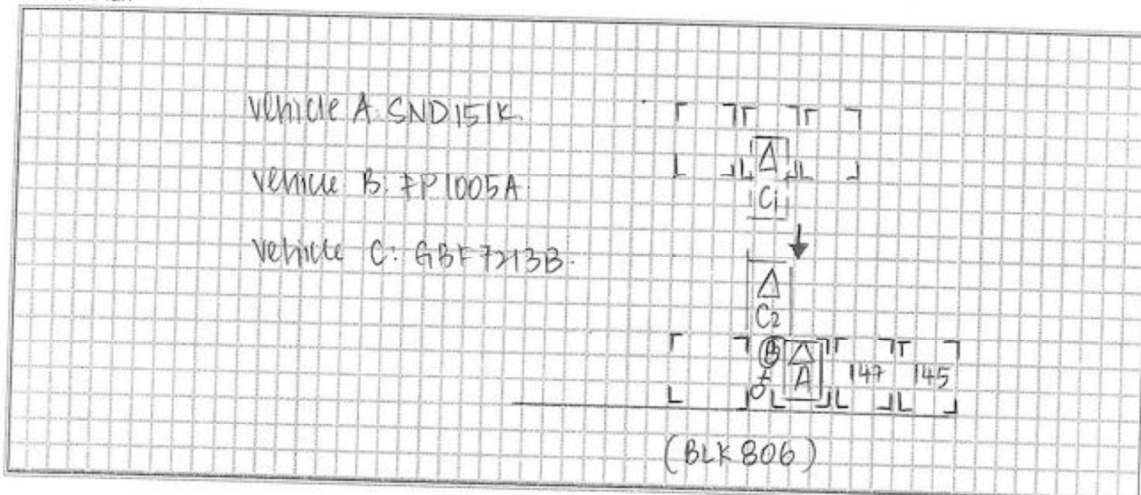 vehicle A: SND151K
vehicle B: FP1005A
vehicle C: GBF7213B.
C1
C2
B
A
147
145
(BLK 806)